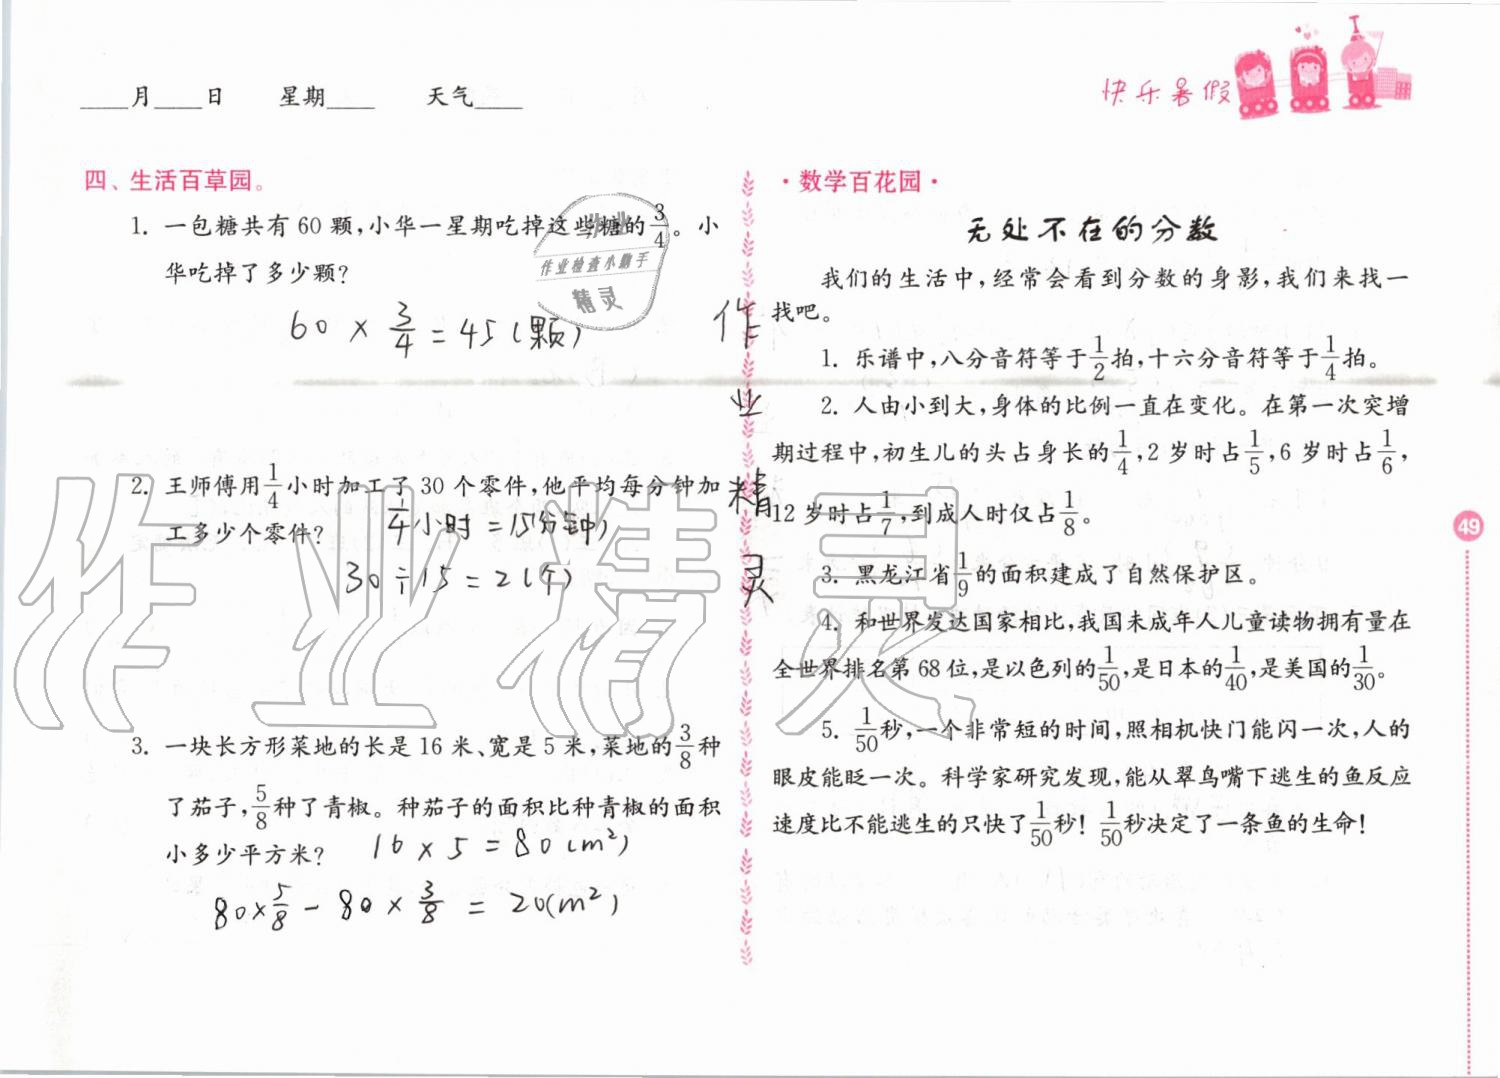 ____月____日　　星期____　　天气____
快乐暑假
四、生活百草园。
1. 一包糖共有 60 颗,小华一星期吃掉这些糖的3/4。小
华吃掉了多少颗?
60 × 3/4 = 45(颗)
2. 王师傅用1/4小时加工了 30 个零件,他平均每分钟加
工多少个零件?
1/4小时=15(分钟)
30÷15=2(个)
3. 一块长方形菜地的长是 16 米、宽是 5 米,菜地的3/8种
了茄子,5/8种了青椒。种茄子的面积比种青椒的面积
小多少平方米?
16×5=80(m²)
80×5/8-80×3/8=20(m²)
作业
作业检查小助手
精灵
作业精灵
作业精灵
·数学百花园·
无处不在的分数
我们的生活中,经常会看到分数的身影,我们来找一
找吧。
1. 乐谱中,八分音符等于1/2拍,十六分音符等于1/4拍。
2. 人由小到大,身体的比例一直在变化。在第一次突增
期过程中,初生儿的头占身长的1/4,2 岁时占1/5,6 岁时占1/6,
12 岁时占1/7,到成人时仅占1/8。
3. 黑龙江省1/9的面积建成了自然保护区。
4. 和世界发达国家相比,我国未成年人儿童读物拥有量在
全世界排名第 68 位,是以色列的1/50,是日本的1/40,是美国的1/30。
5. 1/50秒,一个非常短的时间,照相机快门能闪一次,人的
眼皮能眨一次。科学家研究发现,能从翠鸟嘴下逃生的鱼反应
速度比不能逃生的只快了1/50秒! 1/50秒决定了一条鱼的生命!
49